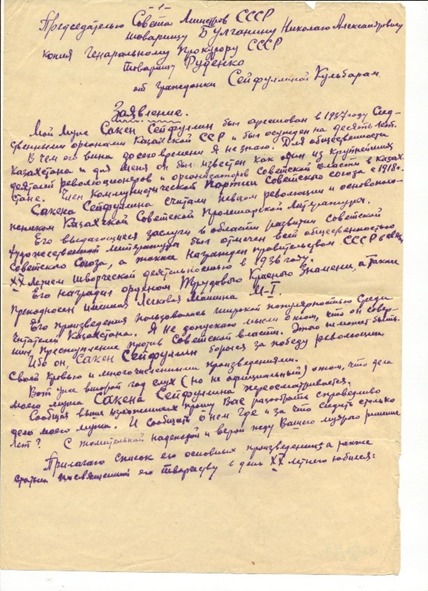 -1-
Председателю Совета Министров СССР
товарищу Булганину Николаю Александровичу
копия Генеральному Прокурору СССР
товарищу Руденко
от гражданки Сейфуллиной Гульбарам
Заявление.
Мой муж Сакен Сейфуллин был арестован в 1937 году След-
ственными органами Казахской ССР и был осужден на десять лет.
В чем его вина до сего времени я не знаю. Для общественности
Казахстана и для меня он был известен как один из крупнейших
деятелей революционеров и организаторов Советской власти в Казах-
стане. Член Коммунистической Партии Советского союза с 1918 г.
Сакена Сейфуллина считали певцом революции и основопо-
ложником Казахской Советской Пролетарской литературы.
Его выдающиеся заслуги в области развития Советской
художественной литературы был отмечен всей общественностью
Советского Союза, а также награжден правительством СССР в связи
XX летием творческой деятельностью в 1936 году.
Его наградил орденом Трудового Красного Знамени, а также
преподнесен именная легковая машина М-1.
Его произведения пользовались широкой популярностью среди
читателей Казахстана. Я не допускаю мысли о том, что он совер-
шил преступление против Советской власти. Этого не может быть.
Ибо он, Сакен Сейфуллин боролся за победу революции
своей кровью и многочисленными произведениями.
Вот уже второй год слух (но не официальный) о том, что дело
моего мужа Сакена Сейфуллина пересматривается.
Сообщая выше изложенных прошу Вас разобрать справедливо
дело моего мужа. И сообщить о нем где и за что сидит столько
лет? С надеждой и верой жду Вашего мудрого решения
Прилагаю список его основных произведений а также
статьи посвященной его творчеству в день XX летнего юбилея: